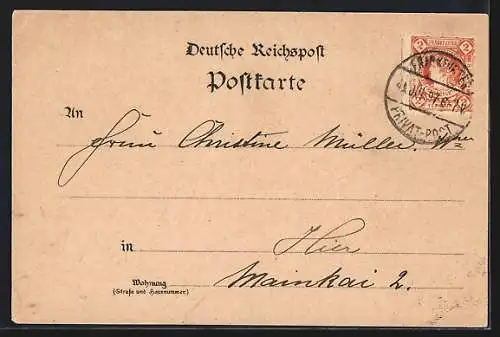 Deutsche Reichspost
Postkarte
An
Frau Christine Müller,
in Hier
Wohnung
(Straße und Hausnummer)
Mainkai 2.
2 2
PRIVAT-POST